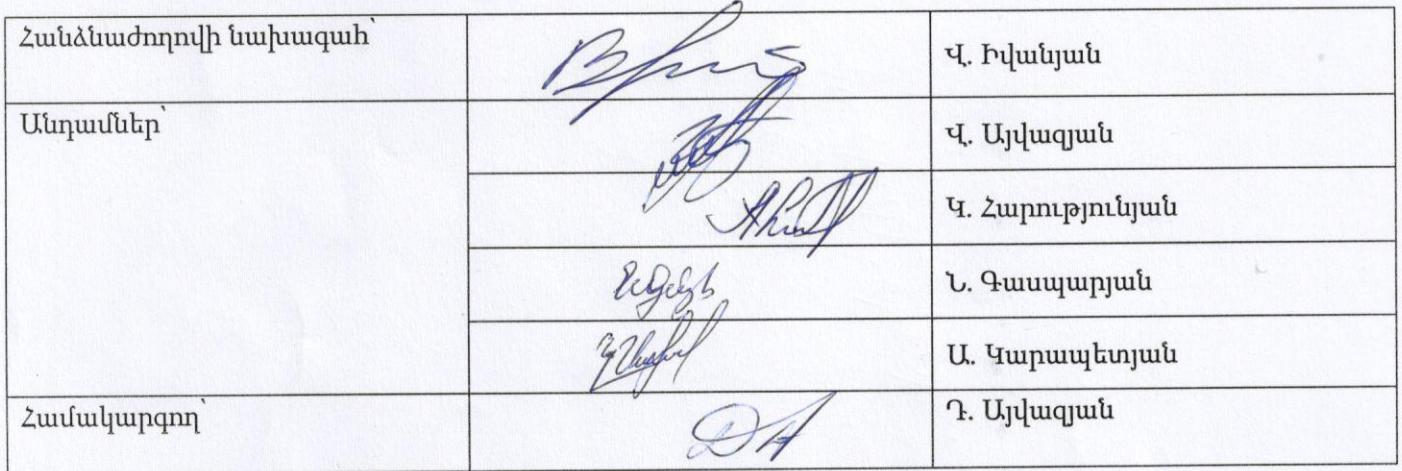 Հանձնաժողովի նախագահ՝
Վ. Իվանյան
Անդամներ՝
Վ. Այվազյան
Կ. Հարությունյան
Ն. Գասպարյան
Ա. Կարապետյան
Համակարգող՝
Դ. Այվազյան